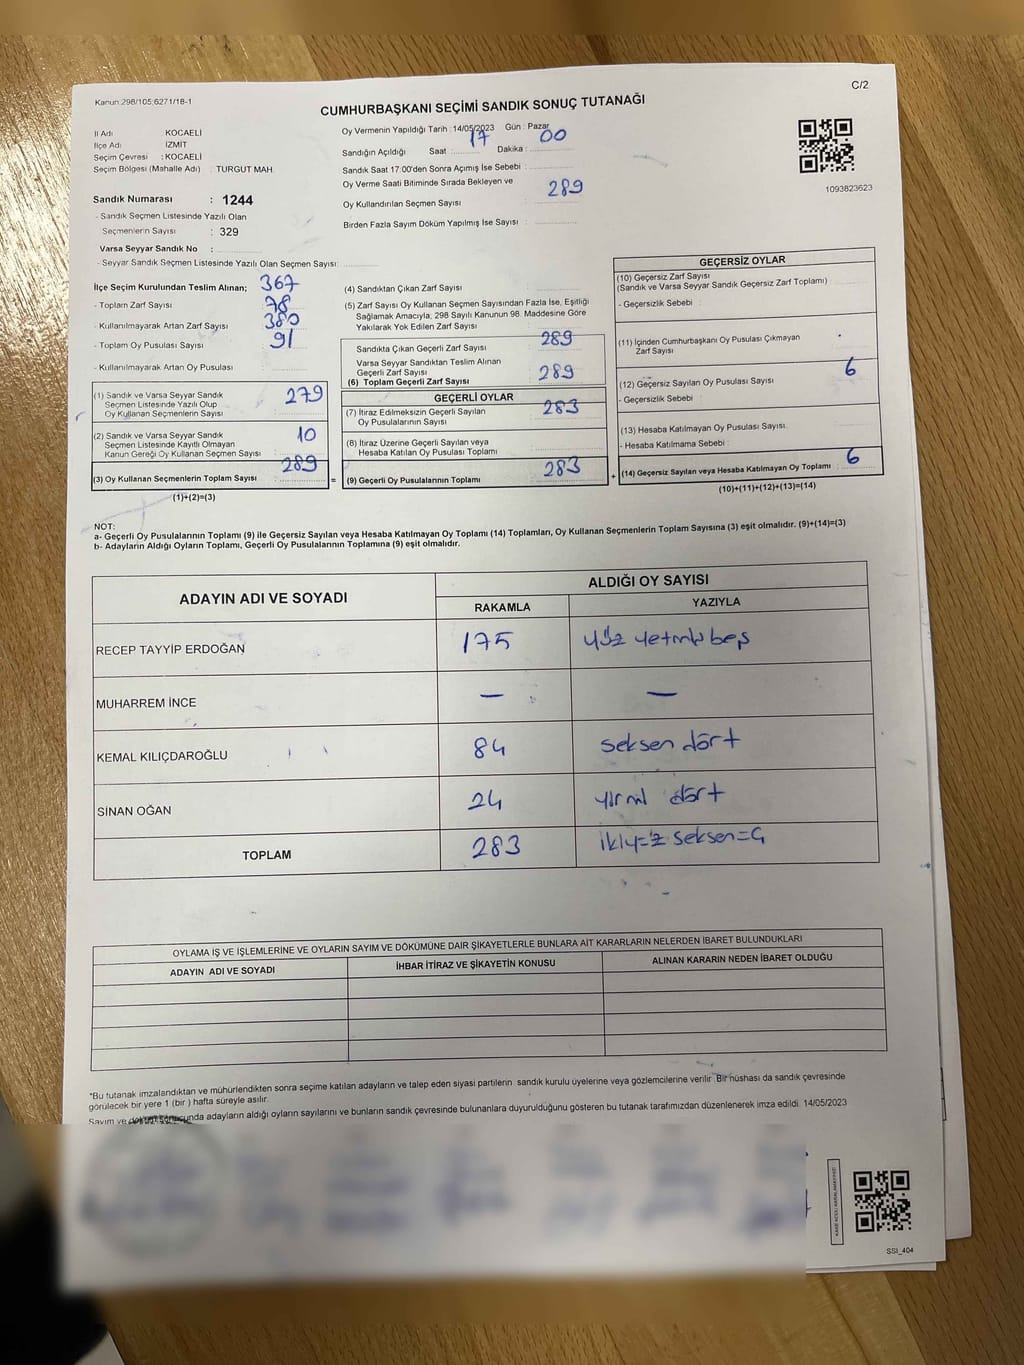 C/2
Kanun:298/105;6271/18-1
CUMHURBAŞKANI SEÇİMİ SANDIK SONUÇ TUTANAĞI
İl Adı KOCAELİ
İlçe Adı İZMİT
Seçim Çevresi : KOCAELİ
Seçim Bölgesi (Mahalle Adı) : TURGUT MAH.
Oy Vermenin Yapıldığı Tarih : 14/05/2023 Gün : Pazar
Sandığın Açıldığı Saat : 17 Dakika : 00
Sandık Saat 17:00'den Sonra Açımış İse Sebebi :
Oy Verme Saati Bitiminde Sırada Bekleyen ve
Oy Kullandırılan Seçmen Sayısı : 289
Birden Fazla Sayım Döküm Yapılmış İse Sayısı :
1093823623
Sandık Numarası : 1244
- Sandık Seçmen Listesinde Yazılı Olan
Seçmenlerin Sayısı : 329
Varsa Seyyar Sandık No :
- Seyyar Sandık Seçmen Listesinde Yazılı Olan Seçmen Sayısı:
İlçe Seçim Kurulundan Teslim Alınan; 367
- Toplam Zarf Sayısı 78
- Kullanılmayarak Artan Zarf Sayısı 380
- Toplam Oy Pusulası Sayısı 91
- Kullanılmayarak Artan Oy Pusulası
(1) Sandık ve Varsa Seyyar Sandık
Seçmen Listesinde Yazılı Olup
Oy Kullanan Seçmenlerin Sayısı 279
(2) Sandık ve Varsa Seyyar Sandık
Seçmen Listesinde Kayıtlı Olmayan
Kanun Gereği Oy Kullanan Seçmen Sayısı 10
(3) Oy Kullanan Seçmenlerin Toplam Sayısı 289 =
(1)+(2)=(3)
(4) Sandıktan Çıkan Zarf Sayısı
(5) Zarf Sayısı Oy Kullanan Seçmen Sayısından Fazla İse, Eşitliği
Sağlamak Amacıyla, 298 Sayılı Kanunun 98. Maddesine Göre
Yakılarak Yok Edilen Zarf Sayısı
Sandıkta Çıkan Geçerli Zarf Sayısı 289
Varsa Seyyar Sandıktan Teslim Alınan
Geçerli Zarf Sayısı
(6) Toplam Geçerli Zarf Sayısı 289
GEÇERLİ OYLAR
(7) İtiraz Edilmeksizin Geçerli Sayılan
Oy Pusulasının Sayısı 283
(8) İtiraz Üzerine Geçerli Sayılan veya
Hesaba Katılan Oy Pusulası Toplamı
(9) Geçerli Oy Pusulalarının Toplamı 283 +
GEÇERSİZ OYLAR
(10) Geçersiz Zarf Sayısı
(Sandık ve Varsa Seyyar Sandık Geçersiz Zarf Toplamı)
- Geçersizlik Sebebi :
(11) İçinden Cumhurbaşkanı Oy Pusulası Çıkmayan
Zarf Sayısı
(12) Geçersiz Sayılan Oy Pusulası Sayısı 6
- Geçersizlik Sebebi :
(13) Hesaba Katılmayan Oy Pusulası Sayısı
- Hesaba Katılmama Sebebi :
(14) Geçersiz Sayılan veya Hesaba Katılmayan Oy Toplamı 6
(10)+(11)+(12)+(13)=(14)
NOT:
a- Geçerli Oy Pusulalarının Toplamı (9) ile Geçersiz Sayılan veya Hesaba Katılmayan Oy Toplamı (14) Toplamları, Oy Kullanan Seçmenlerin Toplam Sayısına (3) eşit olmalıdır. (9)+(14)=(3)
b- Adayların Aldığı Oyların Toplamı, Geçerli Oy Pusulalarının Toplamına (9) eşit olmalıdır.
ADAYIN ADI VE SOYADI ALDIĞI OY SAYISI
RAKAMLA YAZIYLA
RECEP TAYYİP ERDOĞAN 175 yüz yetmiş beş
MUHARREM İNCE — —
KEMAL KILIÇDAROĞLU 84 seksen dört
SİNAN OĞAN 24 yirmi dört
TOPLAM 283 ikiyüz seksen üç
OYLAMA İŞ VE İŞLEMLERİNE VE OYLARIN SAYIM VE DÖKÜMÜNE DAİR ŞİKAYETLERLE BUNLARA AİT KARARLARIN NELERDEN İBARET BULUNDUKLARI
ADAYIN ADI VE SOYADI İHBAR İTİRAZ VE ŞİKAYETİN KONUSU ALINAN KARARIN NEDEN İBARET OLDUĞU
*Bu tutanak imzalandıktan ve mühürlendikten sonra seçime katılan adayların ve talep eden siyasi partilerin sandık kurulu üyelerine veya gözlemcilerine verilir. Bir nüshası da sandık çevresinde
görülecek bir yere 1 (bir) hafta süreyle asılır.
Sayım ve adayların aldığı oyların sayılarını ve bunların sandık çevresinde bulunanlara duyurulduğunu gösteren bu tutanak tarafımızdan düzenlenerek imza edildi. 14/05/2023
SSI_404